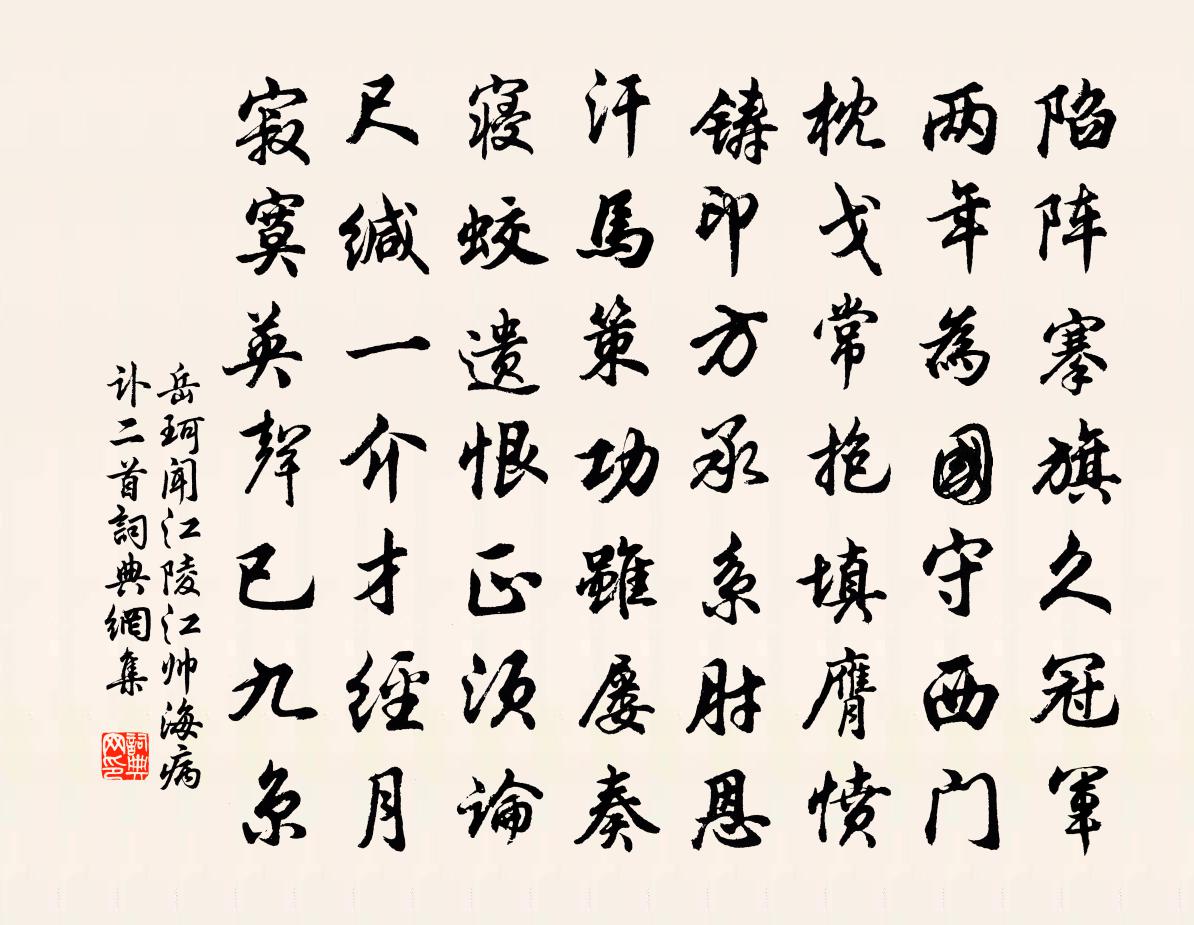 陷阵搴旗久冠军
两年為國守西门
枕戈常抱填膺愤
铸印方承系肘恩
汗馬策功雖屡奏
寝蛟遗恨正须論
尺缄一介才經月
寂寞英聲已九原
岳珂闻江陵江帅海病
讣二首詞典網集
詞典网印